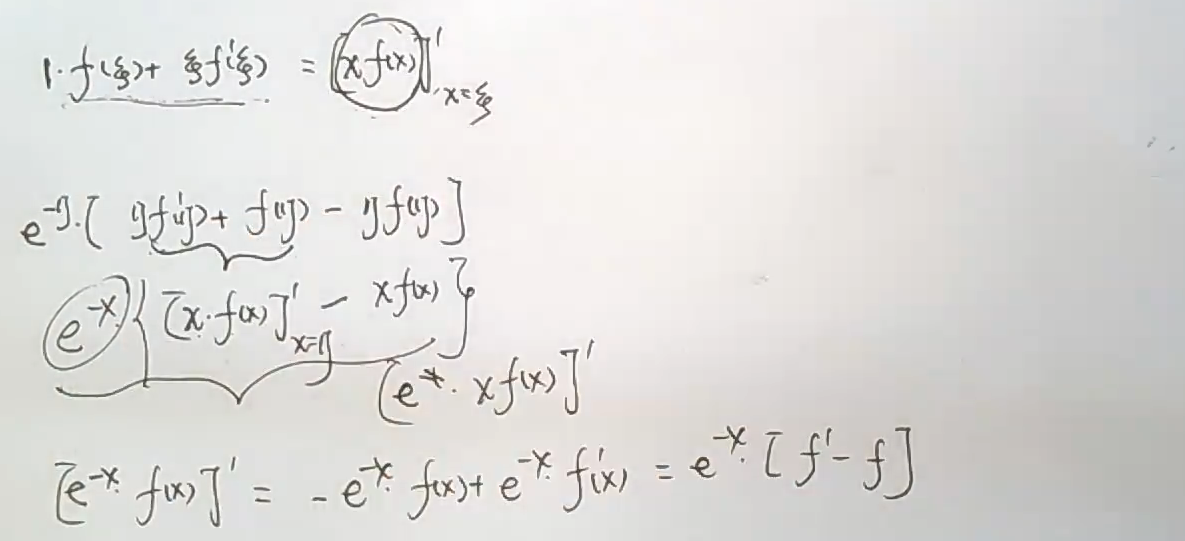 1·f(ξ)+ ξf'(ξ) = [xf(x)]'|x=ξ
e^-η·[ ηf'(η)+ f(η) - ηf(η) ]
e^-x { [x·f(x)]'x=η - xf(x) }
[e^-x · xf(x)]'
[e^-x · f(x)]' = -e^-x · f(x)+ e^-x · f'(x) = e^-x · [f'-f]